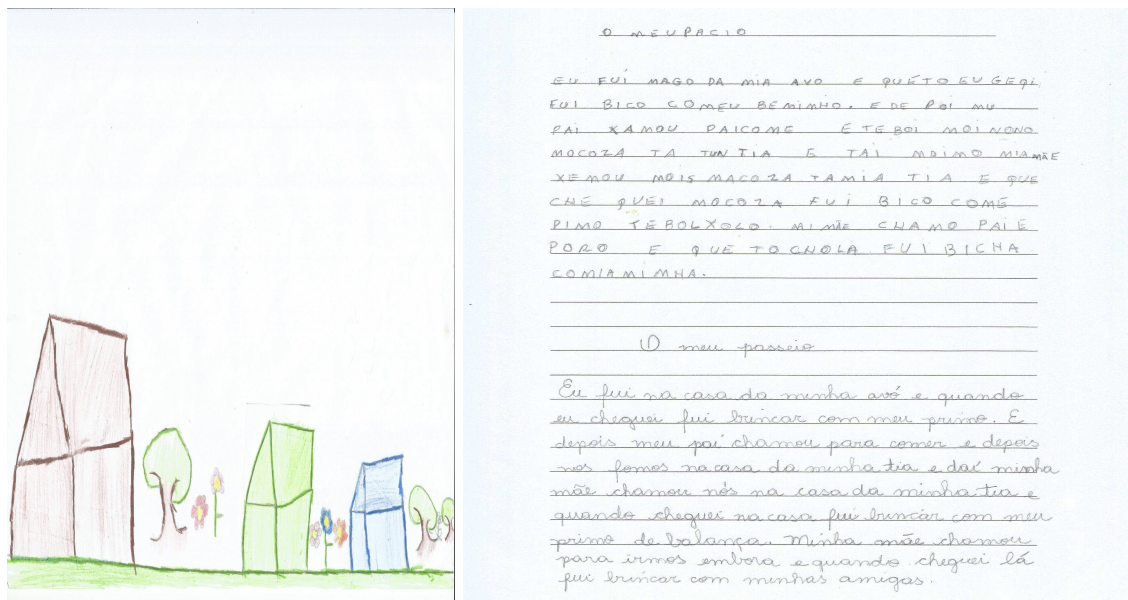 O MEUPACIO
EU FUÍ MAGO DA MIA AVO E QUÉTO EU GEQI
FUI BICO COMEU BEMINHO. E DE POI MU
PAI XAMOU PAICOME E TE BOI MOI NONO
MOCOZA TA TUN TIA E TAI MOIMO MIA MÃE
XEMOU MOIS MACOZA TAMIA TIA E QUE
CHE QUEI MOCOZA FUI BICO COME
PIMO TEBOLXOLO. MI MÃE CHAMO PAIE
PORO E QUE TO CNOLA FUI BICHA
COMIAMIMHA.
O meu passeio
Eu fui na casa da minha avó e quando
eu cheguei fui brincar com meu primo. E
depois meu pai chamou para comer e depois
nos fomos na casa da minha tia e daí minha
mãe chamou nós na casa da minha tia e
quando cheguei na casa fui brincar com meu
primo de balança. Minha mãe chamou
para irmos embora e quando cheguei lá
fui brincar com minhas amigas.